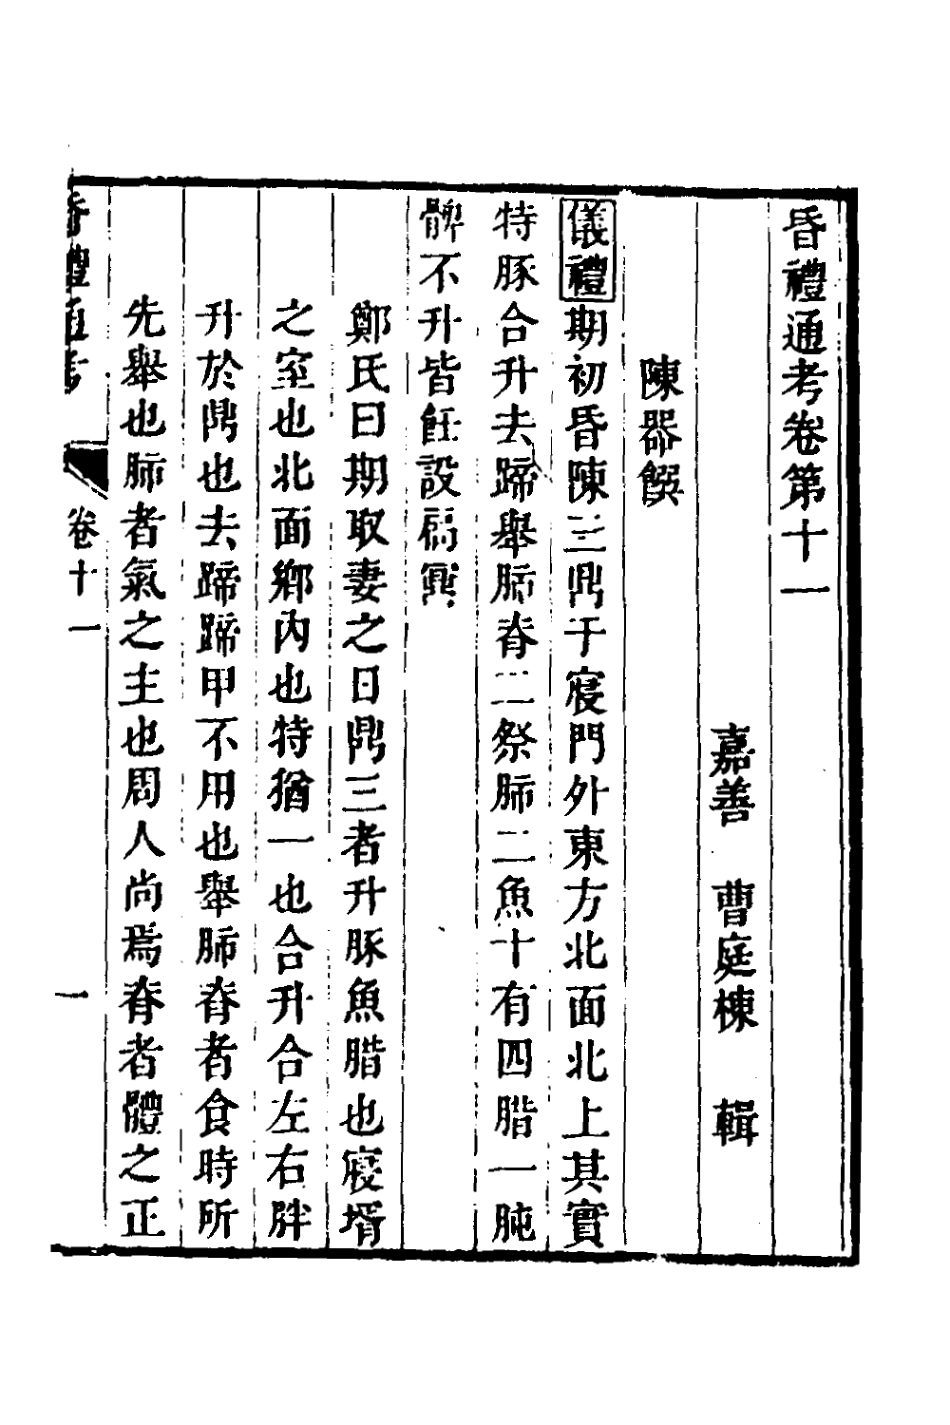 昏禮通考卷第十一
嘉善 曹庭棟 輯
陳器饌
儀禮期初昏陳三鼎于寢門外東方北面北上其實
特豚合升去蹄舉肺脊二祭肺二魚十有四腊一肫
髀不升皆飪設扃鼏
鄭氏曰期取妻之日鼎三者升豚魚腊也寢壻
之室也北面鄉內也特猶一也合升合左右胖
升於鼎也去蹄蹄甲不用也舉肺脊者食時所
先舉也肺者氣之主也周人尚焉脊者體之正
昏禮通考 卷十一 一